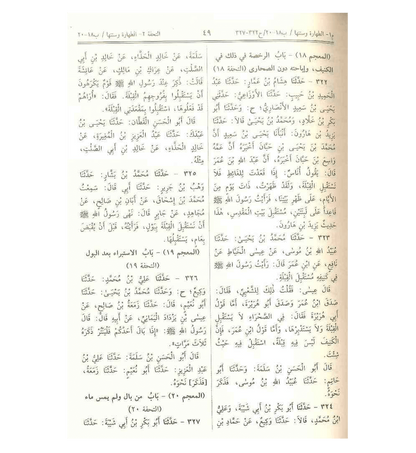 م١- الطهارة وسنتها / ب١٨-٢٠/ح٣٢٢-٣٢٧
٤٩
التحفة ٤- الطهارة وسننها / ب١٨-٢٠
(المعجم ١٨) - بَابُ الرخصة في ذلك في
الكنيف، وإباحته دون الصحارى (التحفة ١٨)
٣٢٢ - حَدَّثَنَا هِشَامُ بْنُ عَمَّارٍ: حَدَّثَنَا عَبْدُ
الْحَمِيدِ بْنُ حَبِيبٍ: حَدَّثَنَا الأَوْزَاعِيُّ: حَدَّثَنِي
يَحْيَى بْنُ سَعِيدٍ الأَنْصَارِيُّ؛ ح: وَحَدَّثَنَا أَبُو
بَكْرِ بْنُ خَلَّادٍ، وَمُحَمَّدُ بْنُ يَحْيَى قَالَا: حَدَّثَنَا
يَزِيدُ بْنُ هَارُونَ: أَنْبَأَنَا يَحْيَى بْنُ سَعِيدٍ أَنَّ
مُحَمَّدَ بْنَ يَحْيَى بْنِ حَبَّانَ أَخْبَرَهُ أَنَّ عَمَّهُ
وَاسِعَ بْنَ حَبَّانَ أَخْبَرَهُ، أَنَّ عَبْدَ اللهِ بْنَ عُمَرَ
قَالَ: يَقُولُ أُنَاسٌ: إِذَا قَعَدْتَ لِلْغَائِطِ فَلَا
تَسْتَقْبِلِ الْقِبْلَةَ، وَلَقَدْ ظَهَرْتُ، ذَاتَ يَوْمٍ مِنَ
الأَيَّامِ، عَلَى ظَهْرِ بَيْتِنَا، فَرَأَيْتُ رَسُولَ اللهِ ﷺ
قَاعِدًا عَلَى لَبِنَتَيْنِ، مُسْتَقْبِلَ بَيْتِ الْمَقْدِسِ، هَذَا
حَدِيثُ يَزِيدَ بْنِ هَارُونَ.
٣٢٣ - حَدَّثَنَا مُحَمَّدُ بْنُ يَحْيَى: حَدَّثَنَا
عُبَيْدُ اللهِ بْنُ مُوسَى، عَنْ عِيسَى الْحَنَّاطِ عَنْ
نَافِعٍ، عَنِ ابْنِ عُمَرَ قَالَ: رَأَيْتُ رَسُولَ اللهِ ﷺ
فِي كَنِيفِهِ مُسْتَقْبِلَ الْقِبْلَةِ.
قَالَ عِيسَى: فَقُلْتُ ذَلِكَ لِلشَّعْبِيِّ، فَقَالَ:
صَدَقَ ابْنُ عُمَرَ وَصَدَقَ أَبُو هُرَيْرَةَ، أَمَّا قَوْلُ
أَبِي هُرَيْرَةَ فَقَالَ: فِي الصَّحْرَاءِ لَا يَسْتَقْبِلِ
الْقِبْلَةَ وَلَا يَسْتَدْبِرْهَا، وَأَمَّا قَوْلُ ابْنِ عُمَرَ، فَإِنَّ
الْكَنِيفَ لَيْسَ فِيهِ قِبْلَةٌ، اسْتَقْبِلْ فِيهِ حَيْثُ
شِئْتَ.
قَالَ أَبُو الْحَسَنِ بْنُ سَلَمَةَ: حَدَّثَنَا أَبُو
حَاتِمٍ: حَدَّثَنَا عُبَيْدُ اللهِ بْنُ مُوسَى، فَذَكَرَ
نَحْوَهُ.
٣٢٤ - حَدَّثَنَا أَبُو بَكْرِ بْنُ أَبِي شَيْبَةَ، وَعَلِيُّ
ابْنُ مُحَمَّدٍ، قَالَا: حَدَّثَنَا وَكِيعٌ، عَنْ حَمَّادِ بْنِ
سَلَمَةَ، عَنْ خَالِدٍ الْحَذَّاءِ، عَنْ خَالِدِ بْنِ أَبِي
الصَّلْتِ، عَنْ عِرَاكِ بْنِ مَالِكٍ، عَنْ عَائِشَةَ
قَالَتْ: ذُكِرَ عِنْدَ رَسُولِ اللهِ ﷺ قَوْمٌ يَكْرَهُونَ
أَنْ يَسْتَقْبِلُوا بِفُرُوجِهِمُ الْقِبْلَةَ، فَقَالَ: «أُرَاهُمْ
قَدْ فَعَلُوهَا، اسْتَقْبِلُوا بِمَقْعَدَتِي الْقِبْلَةَ».
قَالَ أَبُو الْحَسَنِ الْقَطَّانُ: حَدَّثَنَا يَحْيَى بْنُ
عَبْدَكَ: حَدَّثَنَا عَبْدُ الْعَزِيزِ بْنُ الْمُغِيرَةِ، عَنْ
خَالِدٍ الْحَذَّاءِ، عَنْ خَالِدِ بْنِ أَبِي الصَّلْتِ،
مِثْلَهُ.
٣٢٥ - حَدَّثَنَا مُحَمَّدُ بْنُ بَشَّارٍ: حَدَّثَنَا
وَهْبُ بْنُ جَرِيرٍ: حَدَّثَنَا أَبِي قَالَ: سَمِعْتُ
مُحَمَّدَ بْنَ إِسْحَاقَ، عَنْ أَبَانَ بْنِ صَالِحٍ، عَنْ
مُجَاهِدٍ، عَنْ جَابِرٍ قَالَ: نَهَى رَسُولُ اللهِ ﷺ
أَنْ نَسْتَقْبِلَ الْقِبْلَةَ بِبَوْلٍ، فَرَأَيْتُهُ، قَبْلَ أَنْ يُقْبَضَ
بِعَامٍ، يَسْتَقْبِلُهَا.
(المعجم ١٩) - بَابُ الاستبراء بعد البول
(التحفة ١٩)
٣٢٦ - حَدَّثَنَا عَلِيُّ بْنُ مُحَمَّدٍ: حَدَّثَنَا
وَكِيعٌ؛ ح: وَحَدَّثَنَا مُحَمَّدُ بْنُ يَحْيَى: حَدَّثَنَا
أَبُو نُعَيْمٍ، قَالَا: حَدَّثَنَا زَمْعَةُ بْنُ صَالِحٍ، عَنْ
عِيسَى بْنِ يَزْدَادَ الْيَمَانِيِّ، عَنْ أَبِيهِ قَالَ: قَالَ
رَسُولُ اللهِ ﷺ: «إِذَا بَالَ أَحَدُكُمْ فَلْيَنْتُرْ ذَكَرَهُ
ثَلَاثَ مَرَّاتٍ».
قَالَ أَبُو الْحَسَنِ بْنُ سَلَمَةَ: حَدَّثَنَا عَلِيُّ بْنُ
عَبْدِ الْعَزِيزِ: حَدَّثَنَا أَبُو نُعَيْمٍ: حَدَّثَنَا زَمْعَةُ،
[فَذَكَرَ] نَحْوَهُ.
(المعجم ٢٠) - بَابُ من بال ولم يمس ماء
(التحفة ٢٠)
٣٢٧ - حَدَّثَنَا أَبُو بَكْرِ بْنُ أَبِي شَيْبَةَ: حَدَّثَنَا